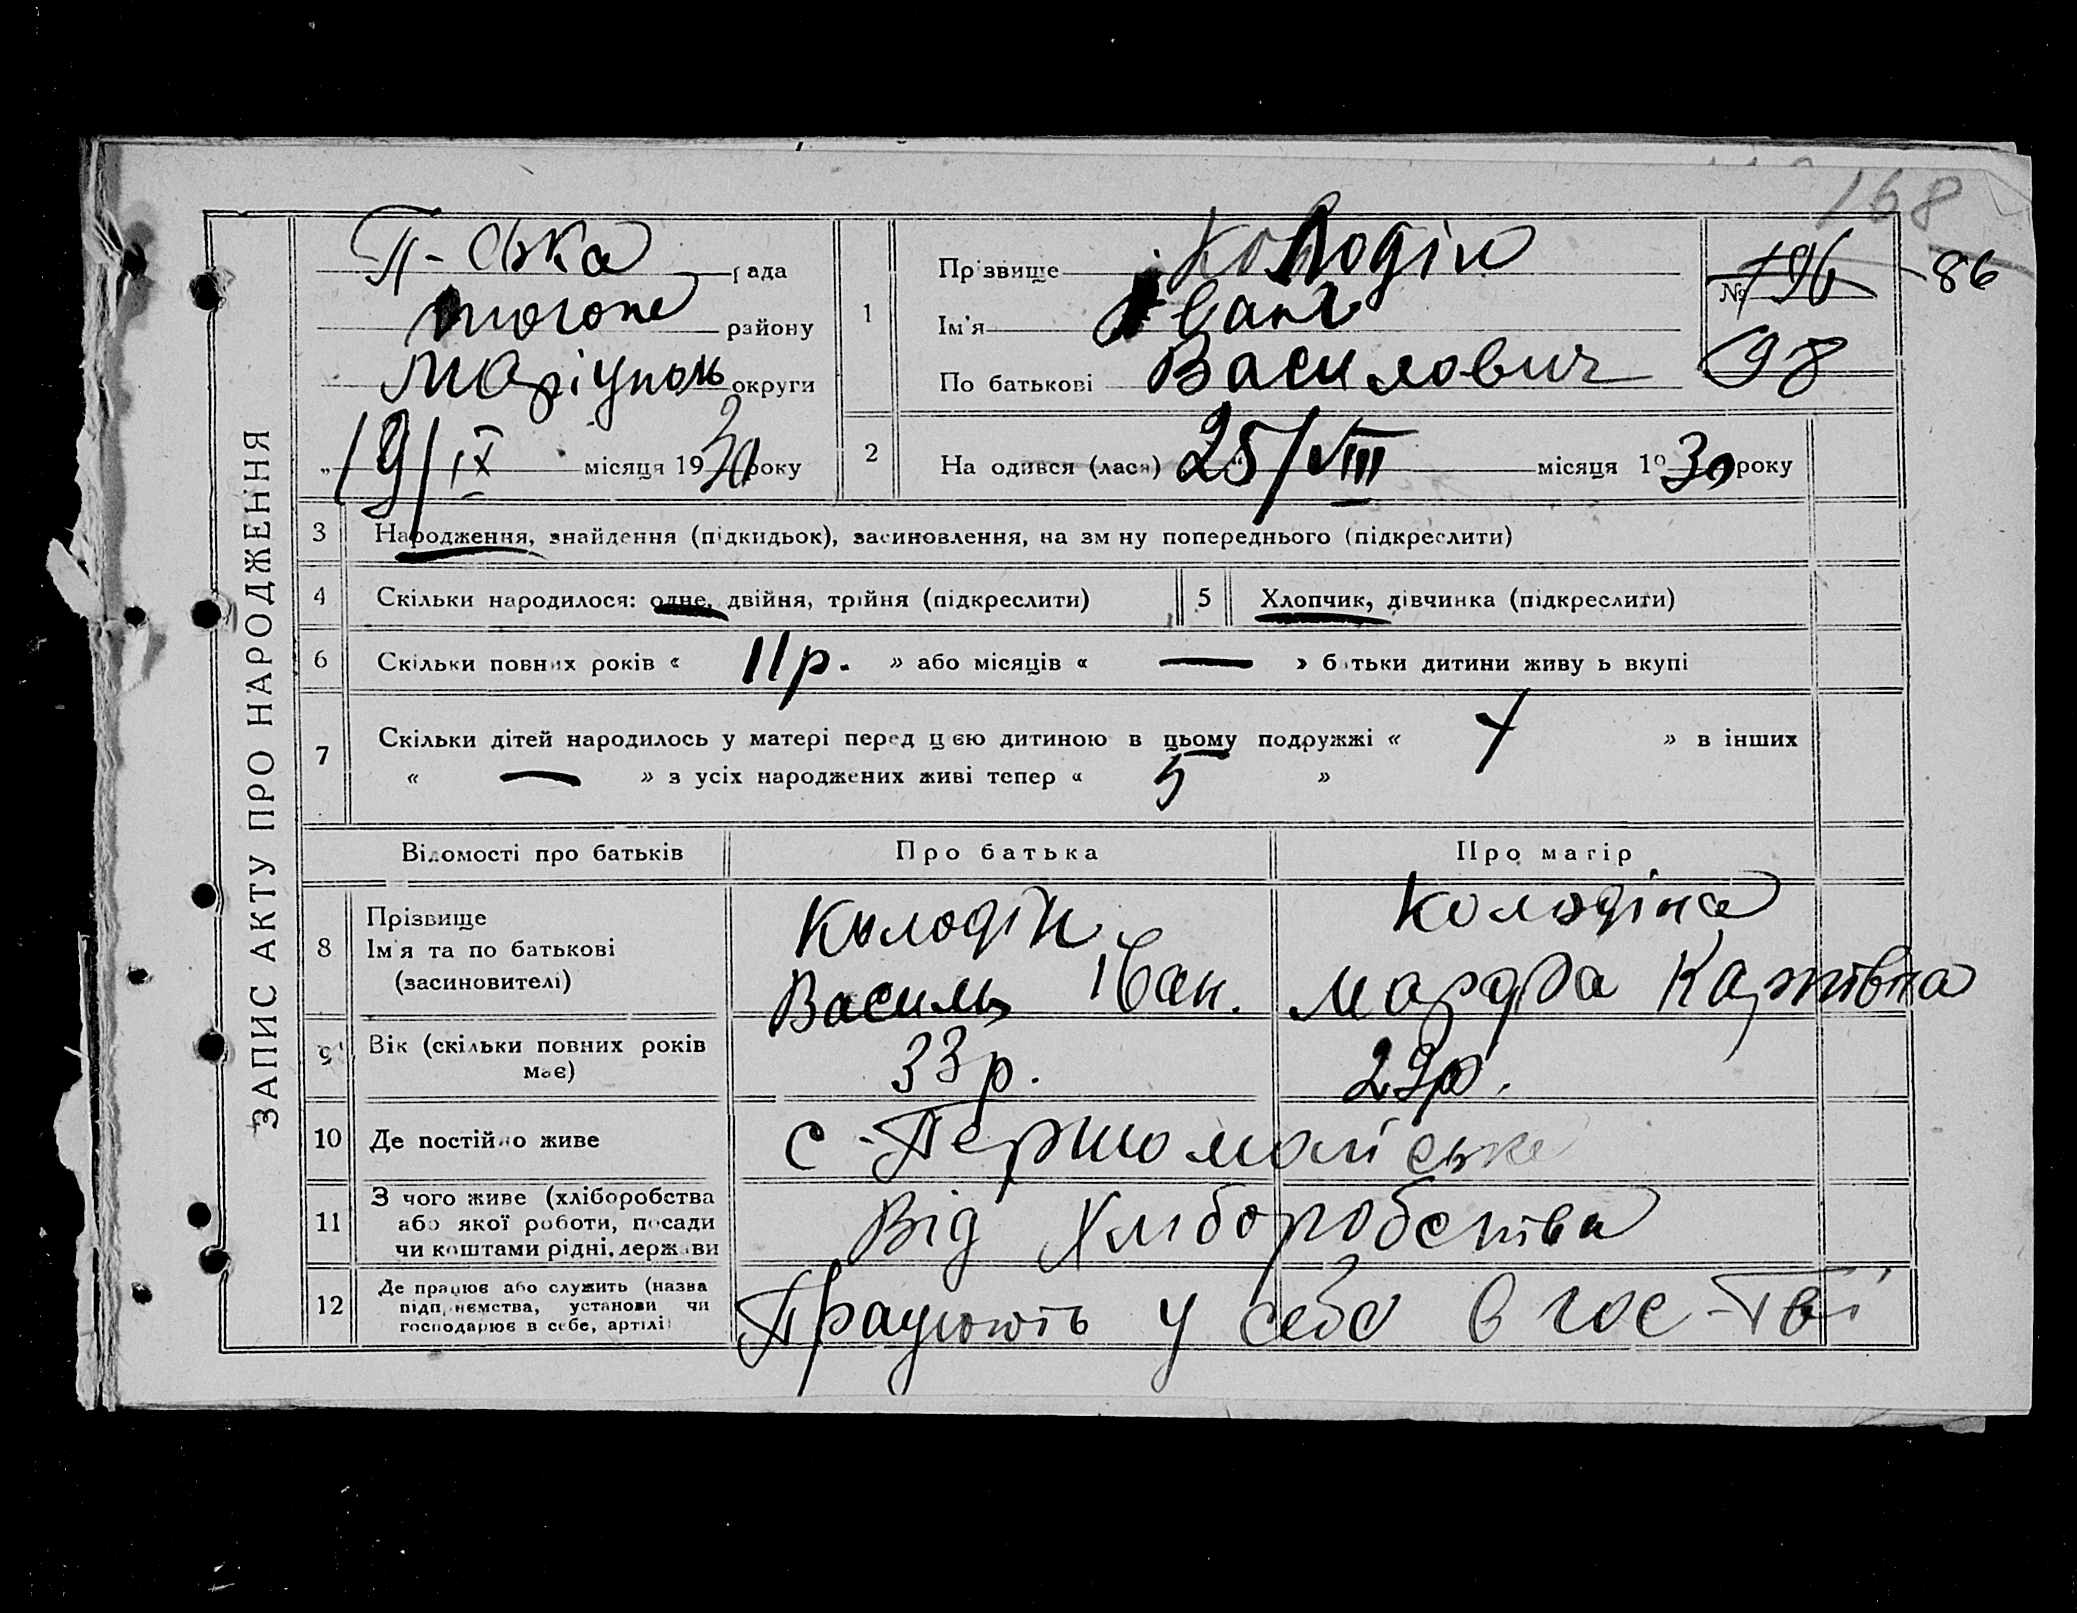 168
ЗАПИС АКТУ ПРО НАРОДЖЕННЯ
П-ська рада
тогоже району
Маріуполь округи
„19/IX місяця 1930 року
1
Прізвище Колодін
Ім'я Іван
По батькові Василович
№ 196 86
98
2
Народився (лася) 25/VIII місяця 1930 року
3 Народження, знайдення (підкидьок), засиновлення, на зміну попереднього (підкреслити)
4 Скільки народилося: одне, двійня, трійня (підкреслити)
5 Хлопчик, дівчинка (підкреслити)
6 Скільки повних років « 11 р. » або місяців « — » батьки дитини живуть вкупі
7 Скільки дітей народилось у матері перед цією дитиною в цьому подружжі « » в інших
« — » з усіх народжених живі тепер « 5 »
Відомості про батьків Про батька Про матір
8 Прізвище
Ім'я та по батькові
(засиновителі)
Колодін
Василь Іван.
Колодіна
Марфа
9 Вік (скільки повних років має) 33 р. 29 р.
10 Де постійно живе с-Першомайське
11 З чого живе (хліборобства
або якої роботи, посади
чи коштами рідні, держави
Від Хліборобства
12 Де працює або служить (назва
підприємства, установи чи
господарює в себе, артілі)
Працюють у себе в гос-тві